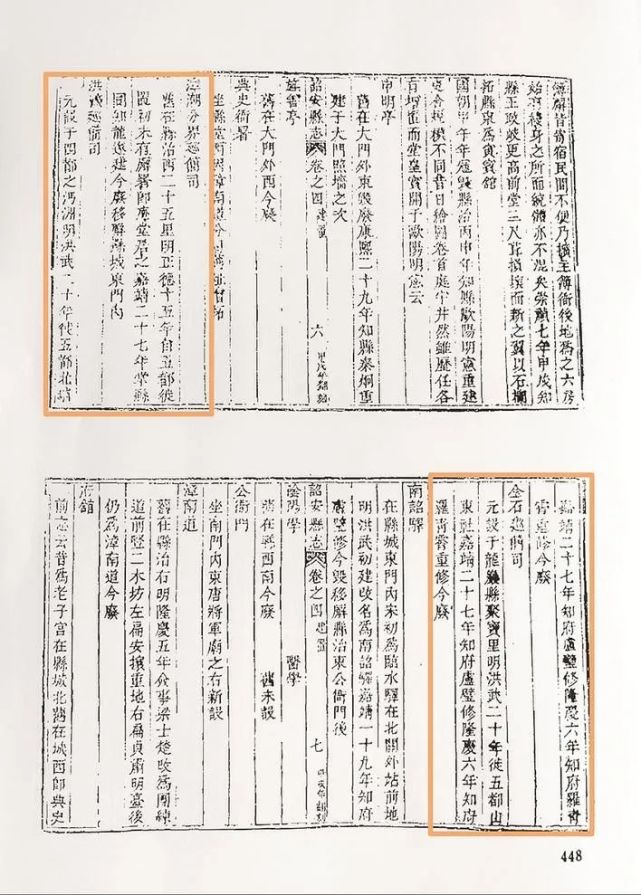 簿廨皆寄宿民間不便乃擴主簿衙後地爲之六房
始有棲身之所而統體亦不混矣崇禎七年甲戌知
縣王政岐更高前堂三尺庀損壞而新之翼以石欄
拓縣東爲寅賓館
國朝甲午年寇毀縣治丙申年知縣歐陽明憲重建
更令規模不同昔日繪圖卷首庭宇井然雖歷任各
有增置而堂皇實開于歐陽明憲云
申明亭
舊在大門外東毀廢康熙二十九年知縣秦炯重
建于大門照墻之次
詔安縣志 卷之四 建置 六
旌善亭
舊在大門外西今廢
典史衙署
坐縣堂西因漳南道
漳潮分界巡檢司
舊在縣治西二十五里明正德十五年自五都徙
置初未有廨署即庵堂居之嘉靖二十七年掌縣
同知龍遂建今廢移廨縣城東門內
洪淡巡檢司
元設于四都之沔洲明洪武二十年徙五都北埔
嘉靖二十七年知府盧璧修隆慶六年知府羅青
霄重修今廢
金石巡檢司
元設于龍巖縣聚賓里明洪武二十年徙五都山
東社嘉靖二十七年知府盧璧修隆慶六年知府
羅青霄重修今廢
南詔驛
在縣城東門內宋初爲臨水驛在北關外站前地
明洪武初建改名爲南詔驛嘉靖一十九年知府
盧璧修今毀移廨縣治東公衙門後
詔安縣志 卷之四 建置 七
陰陽學 醫學
舊在縣西南今廢 舊未設
公衙門
坐南門內東唐將軍廟之右新設
漳南道
舊在縣治右明隆慶五年僉事梁士楚改爲團練
道前豎二木坊左扁安攘重地右扁貞肅明臺後
仍爲漳南道今廢
府館
前志云昔爲老子宮在縣城北舊在城西即典史
448